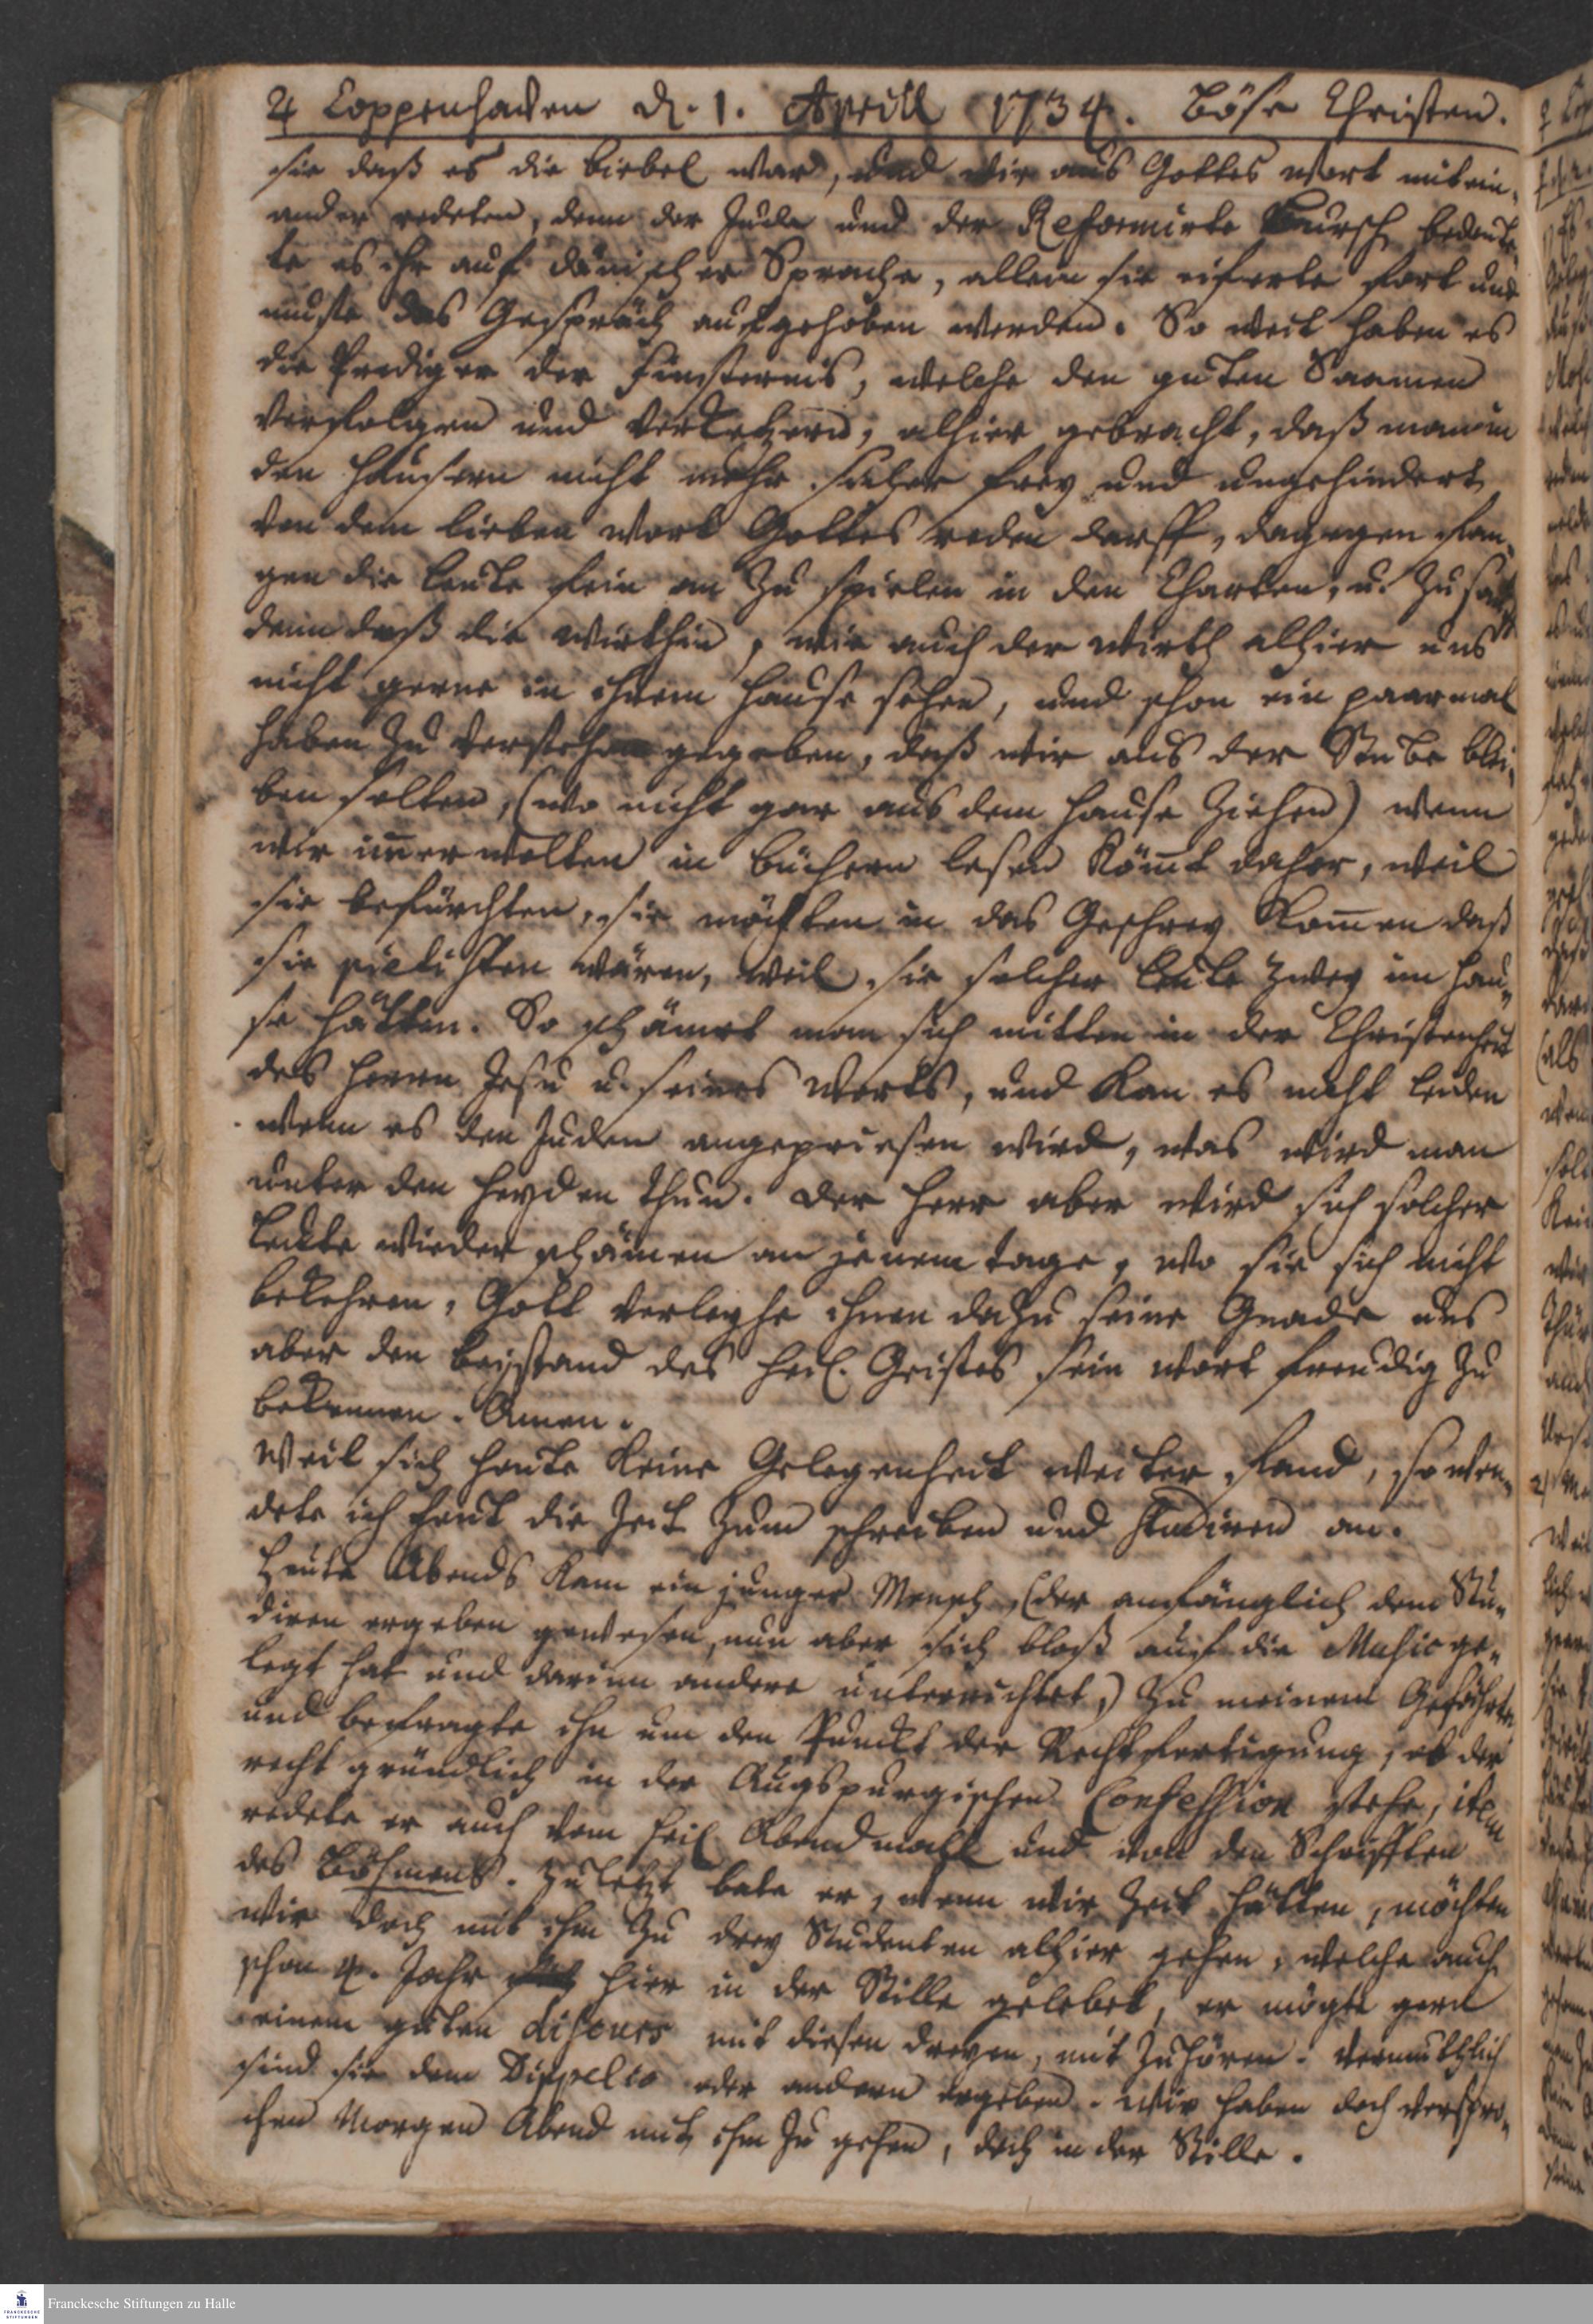 ♃ Coppenhaven d. 1. Aprill 1734. Böse Christen.
sie daß es die biebel war, und wir aus Gottes wort mitein-
ander redeten, denn der Jude und der Reformirte Bursch bedeute-
te es ihr auf dänischer Sprache, allein sie eiferte fort und
muste das Gespräch aufgehoben werden. So weit haben es
die Prediger der Finsternis, welche den guten Saamen
verfolgen und verketzern, alhier gebracht, daß man in
den Häusern nicht mehr sicher frey und ungehindert
von dem lieben Wort Gottes reden darff, dagegen fan-
gen die Leute fein an zu spielen in den Charten, u. zu
denn daß die Wirthin, wie auch der Wirth alhier uns
nicht gerne in ihrem Hause sehen, und schon ein paarmal
haben zu verstehen gegeben, daß wir aus der Stube blei-
ben solten, (wo nicht gar aus dem Hause ziehen) wenn
wir im̅er wolten in büchern lesen köm̅t daher, weil
sie befürchten, sie möchten in das Geschrey kom̅en daß
sie pietisten wären, weil sie solcher Leute zwey im Hau-
se hätten. So schämet man sich mitten in der Christenheit
des Herrn Jesu u. seines Worts, und kan es nicht leiden
wenn es den Juden angepriesen wird, was wird man
unter den Heyden thun. Der Herr aber wird sich solcher
Leute wieder schämen an jenem tage, wo sie sich nicht
bekehren, Gott verleyhe ihnen dazu seine Gnade uns
aber den beystand des Heil. Geistes sein wort freudig zu
bekennen. Amen.
Weil sich heute keine Gelegenheit weiter fand, so wen-
dete ich heut die Zeit zum schreiben und studiren an.
Heute Abends kam ein junger Mensch, (der anfänglich dem Stu-
diren ergeben gewesen, nun aber sich bloß auf die Music ge-
legt hat und darinn andere unterrichtet,) zu meinem Gefährten
und befragte ihn um den Punckt der Rechtfertigung, ob der
recht gründlich in der Augspurgischen Confession stehe, item
redete er auch vom Heil. Abendmahl und von den Schrifften
des Böhmens. Zuletzt bate er, wenn wir Zeit hätten, möchten
wir doch mit ihm zu drey Studenten alhier gehen, welche auch
schon 4. Jahr hier in der Stille gelebet, er mögte gern
einem guten discurs mit diesen dreyen, mit zuhören. Vermuthlich
sind sie dem Dippelio oder andern ergeben. Wir haben doch verspro-
chen Morgen Abend mit ihm zu gehen, doch in der Stille.
Franckesche Stiftungen zu Halle